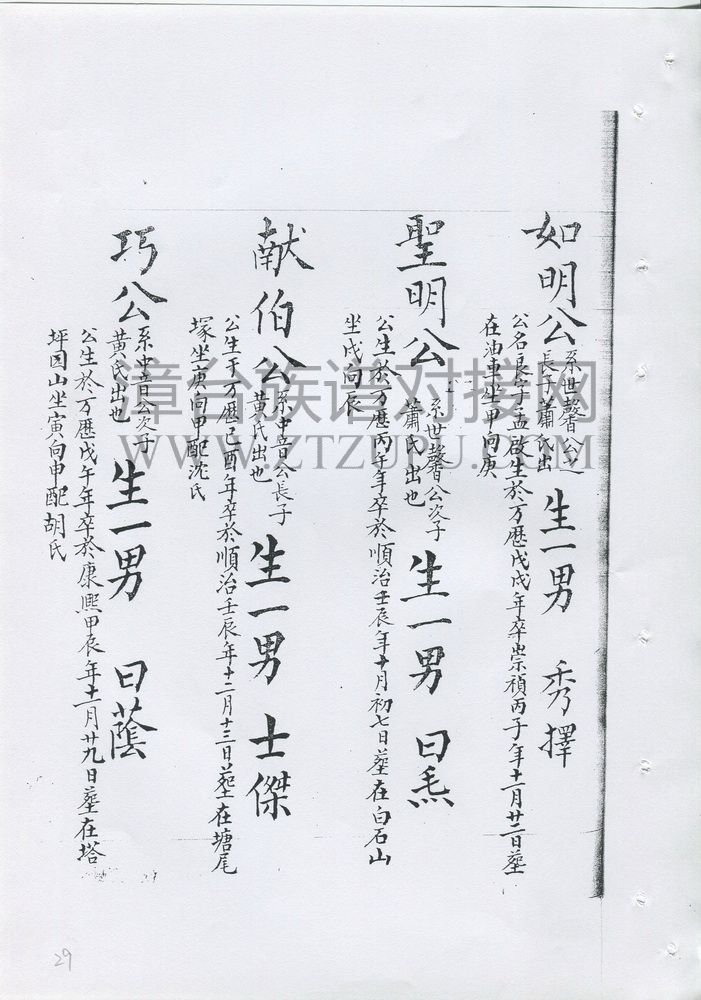 如明公 系世馨公之長子蕭氏出 生一男 秀擇
公名良字孟啟生於万歷戊戌年卒崇禎丙子年十一月廿二日塟
在油車坐甲向庚
聖明公 系世馨公次子蕭氏出也 生一男 曰𤆬
公生於万歷丙午年卒於順治壬辰年十月初七日塟在白石山
坐戌向辰
献伯公 系中音公長子黃氏出也 生一男 士傑
公生于万歷己酉年卒於順治壬辰年十二月十三日塟在塘尾
塚坐庚向甲配沈氏
巧公 系中音公次子黃氏出也 生一男 曰蔭
公生於万歷戊午年卒於康熙甲辰年十一月廿九日塟在塔
坪圆山坐寅向申配胡氏
漳台族谱对接网
WWW.ZTZUPU.COM
29